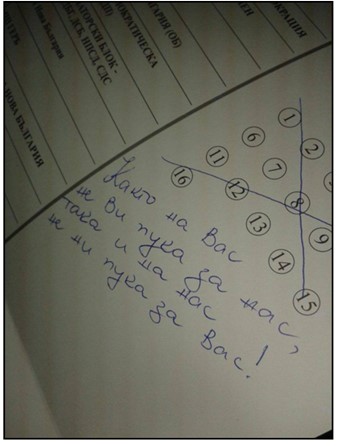 НОВА БЪЛГАРИЯ
Нова България
АТОРСКИ БЛОК -
БДСК, НПСД, СДС
ОКРАТИЧЕСКА
ГАРИЯ (ОБ)
КРАЦИЯ
1
2
6
7
8
9
11
12
13
14
15
16
Както на Вас
не Ви пука за нас,
така и на нас
не ни пука за
Вас!